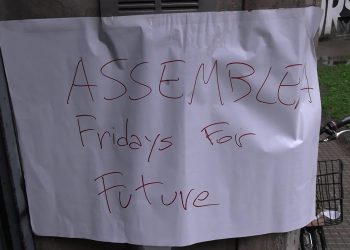 ASSEMBLEA
Fridays For
Future